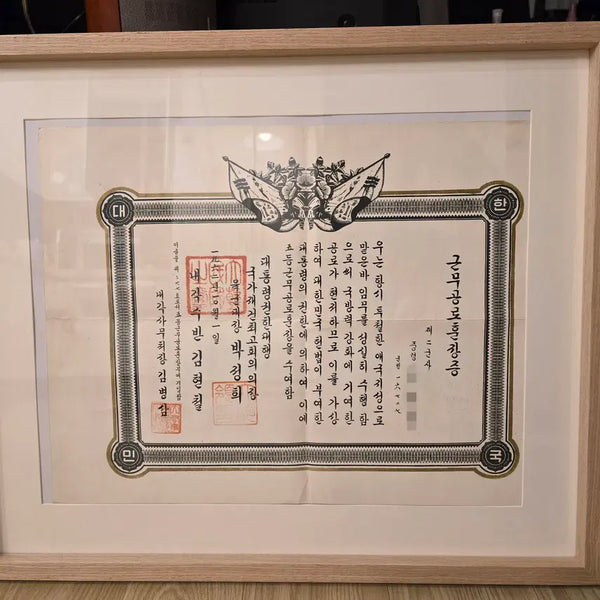 대 한
민 국
근무공로훈장증
제二군사
중령
군번
우는 항시 투철한 애국지성으로
맡은바 임무를 성실히 수행함
으로써 국방력 강화에 기여한
공로가 현저하므로 이를 가상
하여 대한민국 헌법이 부여한
대통령의 권한에 의하여 이에
근무공로훈장을 수여함
대통령권한대행
국가재건최고회의의장
육군대장 박정희
一九六三년 一〇월 一일
내각수반 김현철
이증을 제
내각사무처장 김병삼